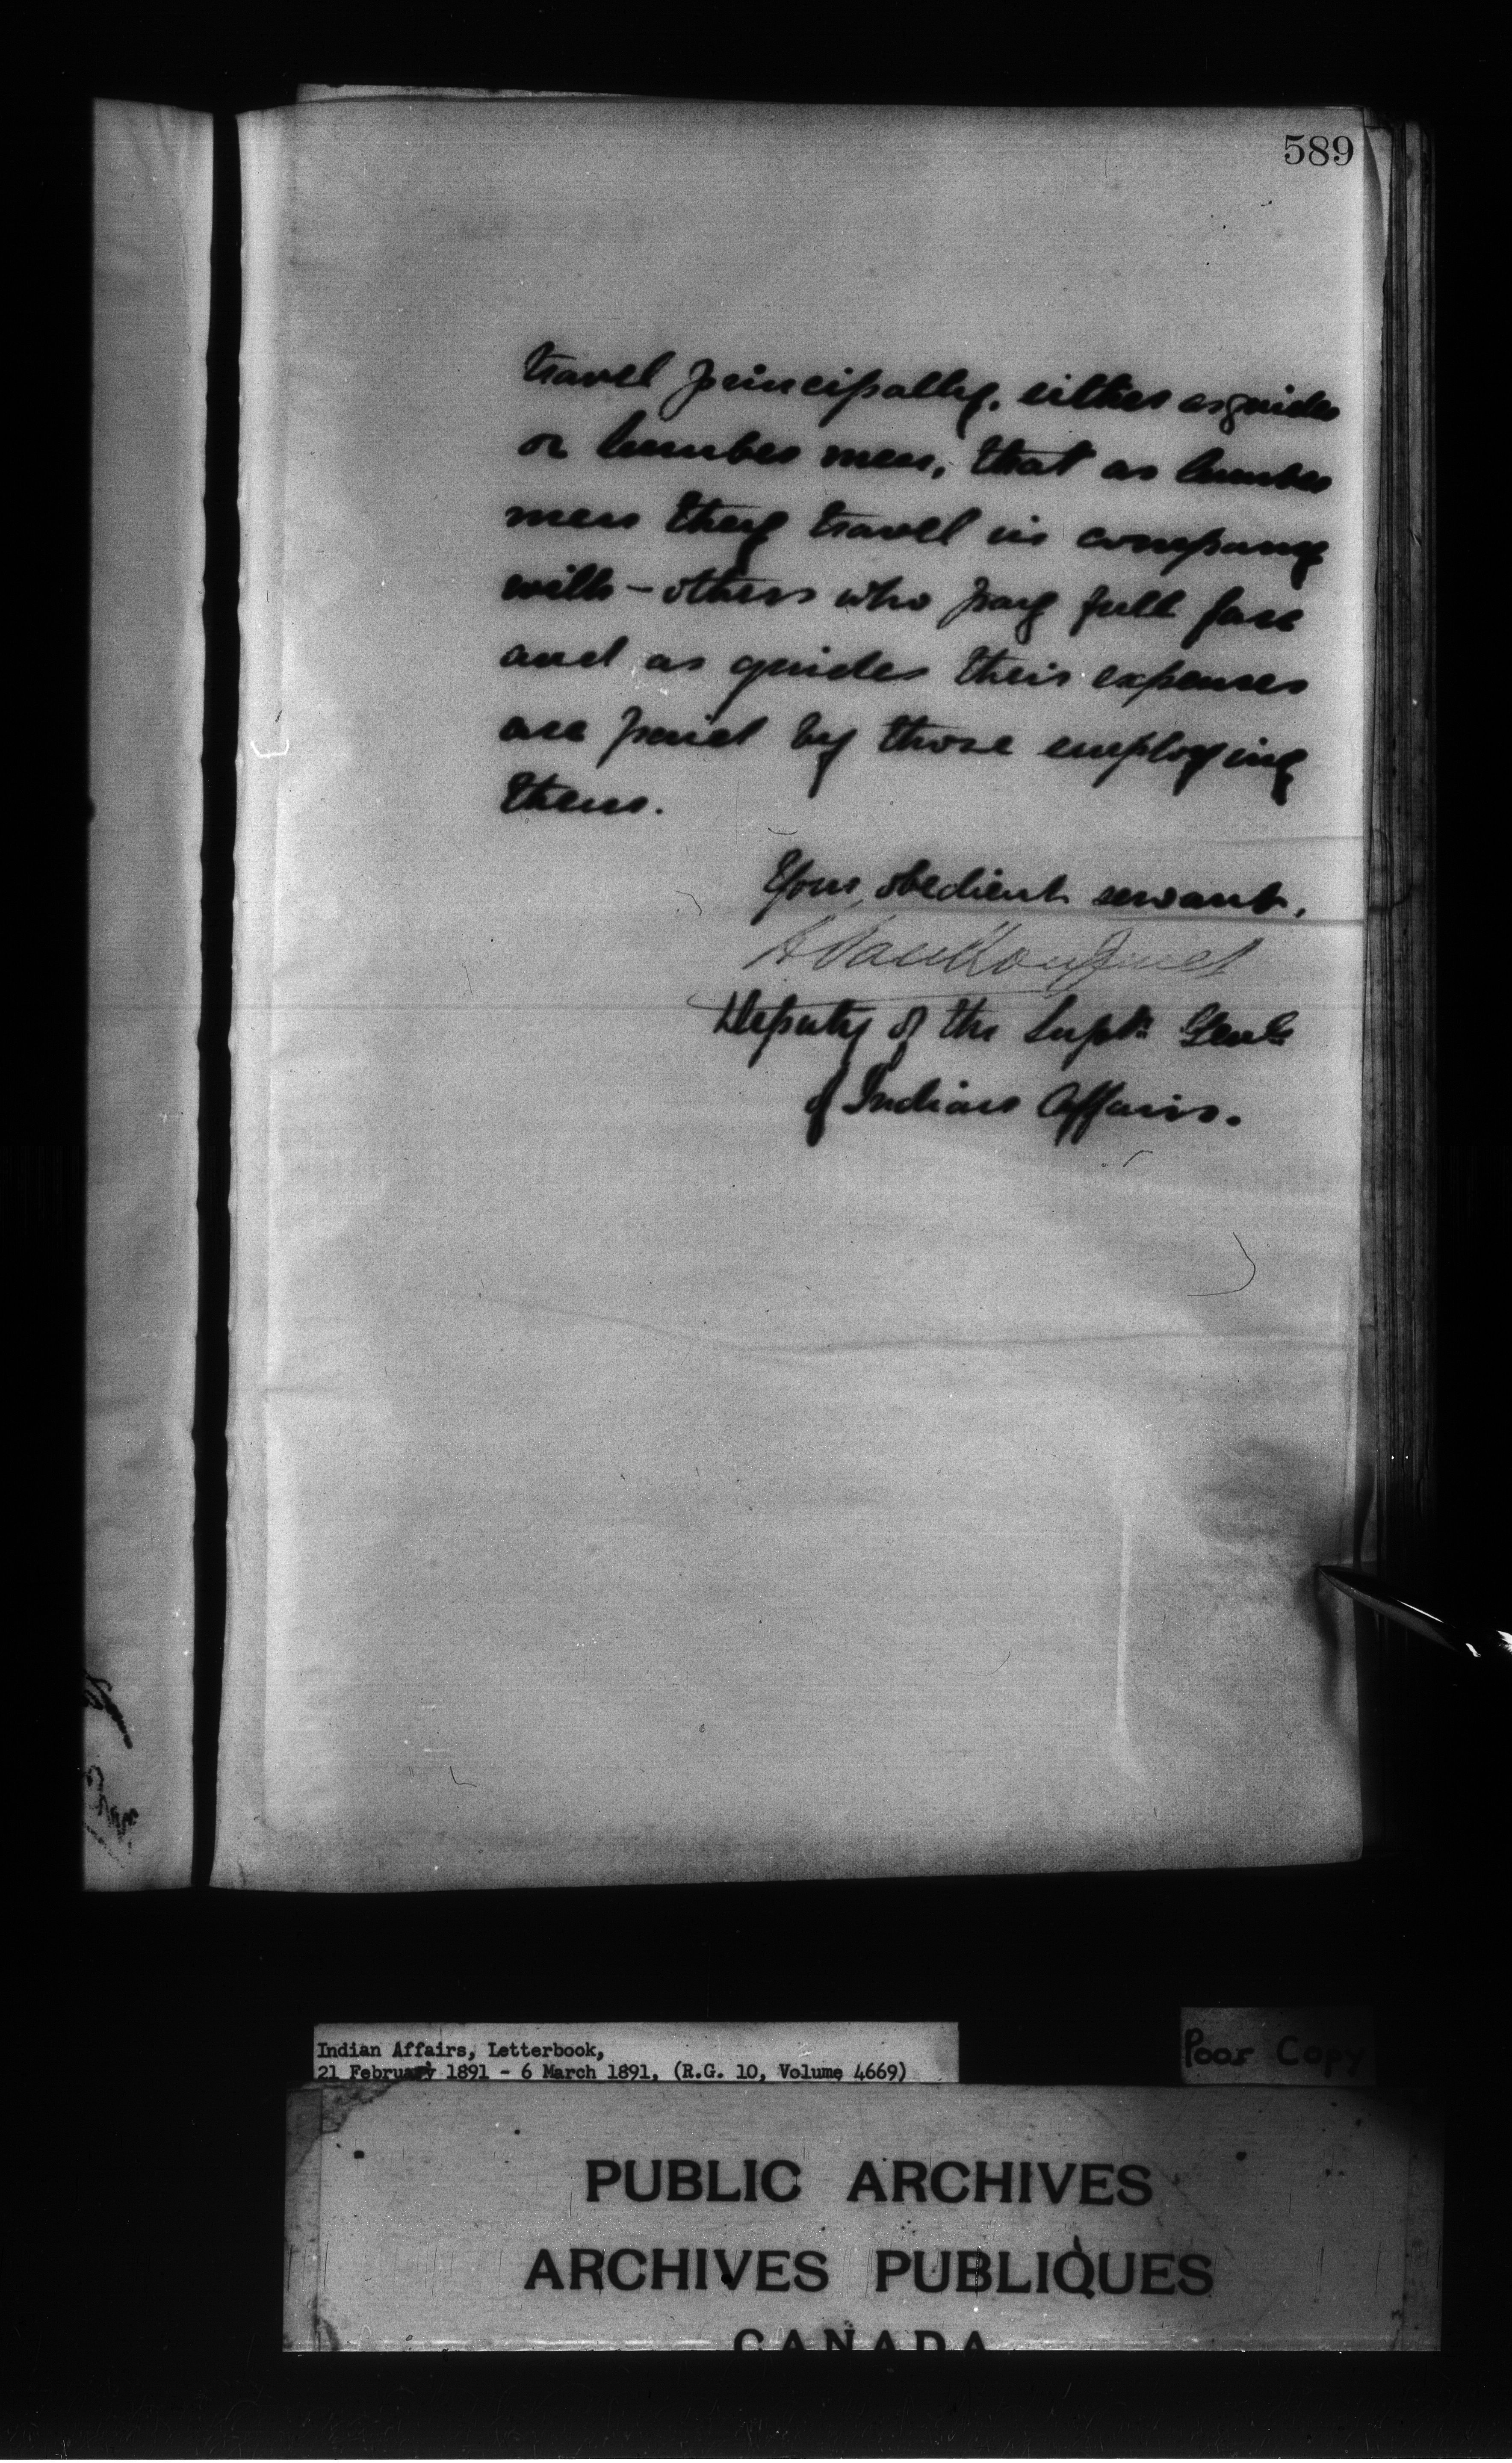 589
travel principally, either as guides
or lumber men, that as lumber
men they travel in company
with – others who pay full fare
and as guides their expenses
are paid by those employing
them.
Your obedient servant,
L VanKoughnet
Deputy of the Supt. Genl.
of Indian Affairs.
Indian Affairs, Letterbook,
21 February 1891 - 6 March 1891, (R.G. 10, Volume 4669)
Poor Copy
PUBLIC ARCHIVES
ARCHIVES PUBLIQUES
CANADA